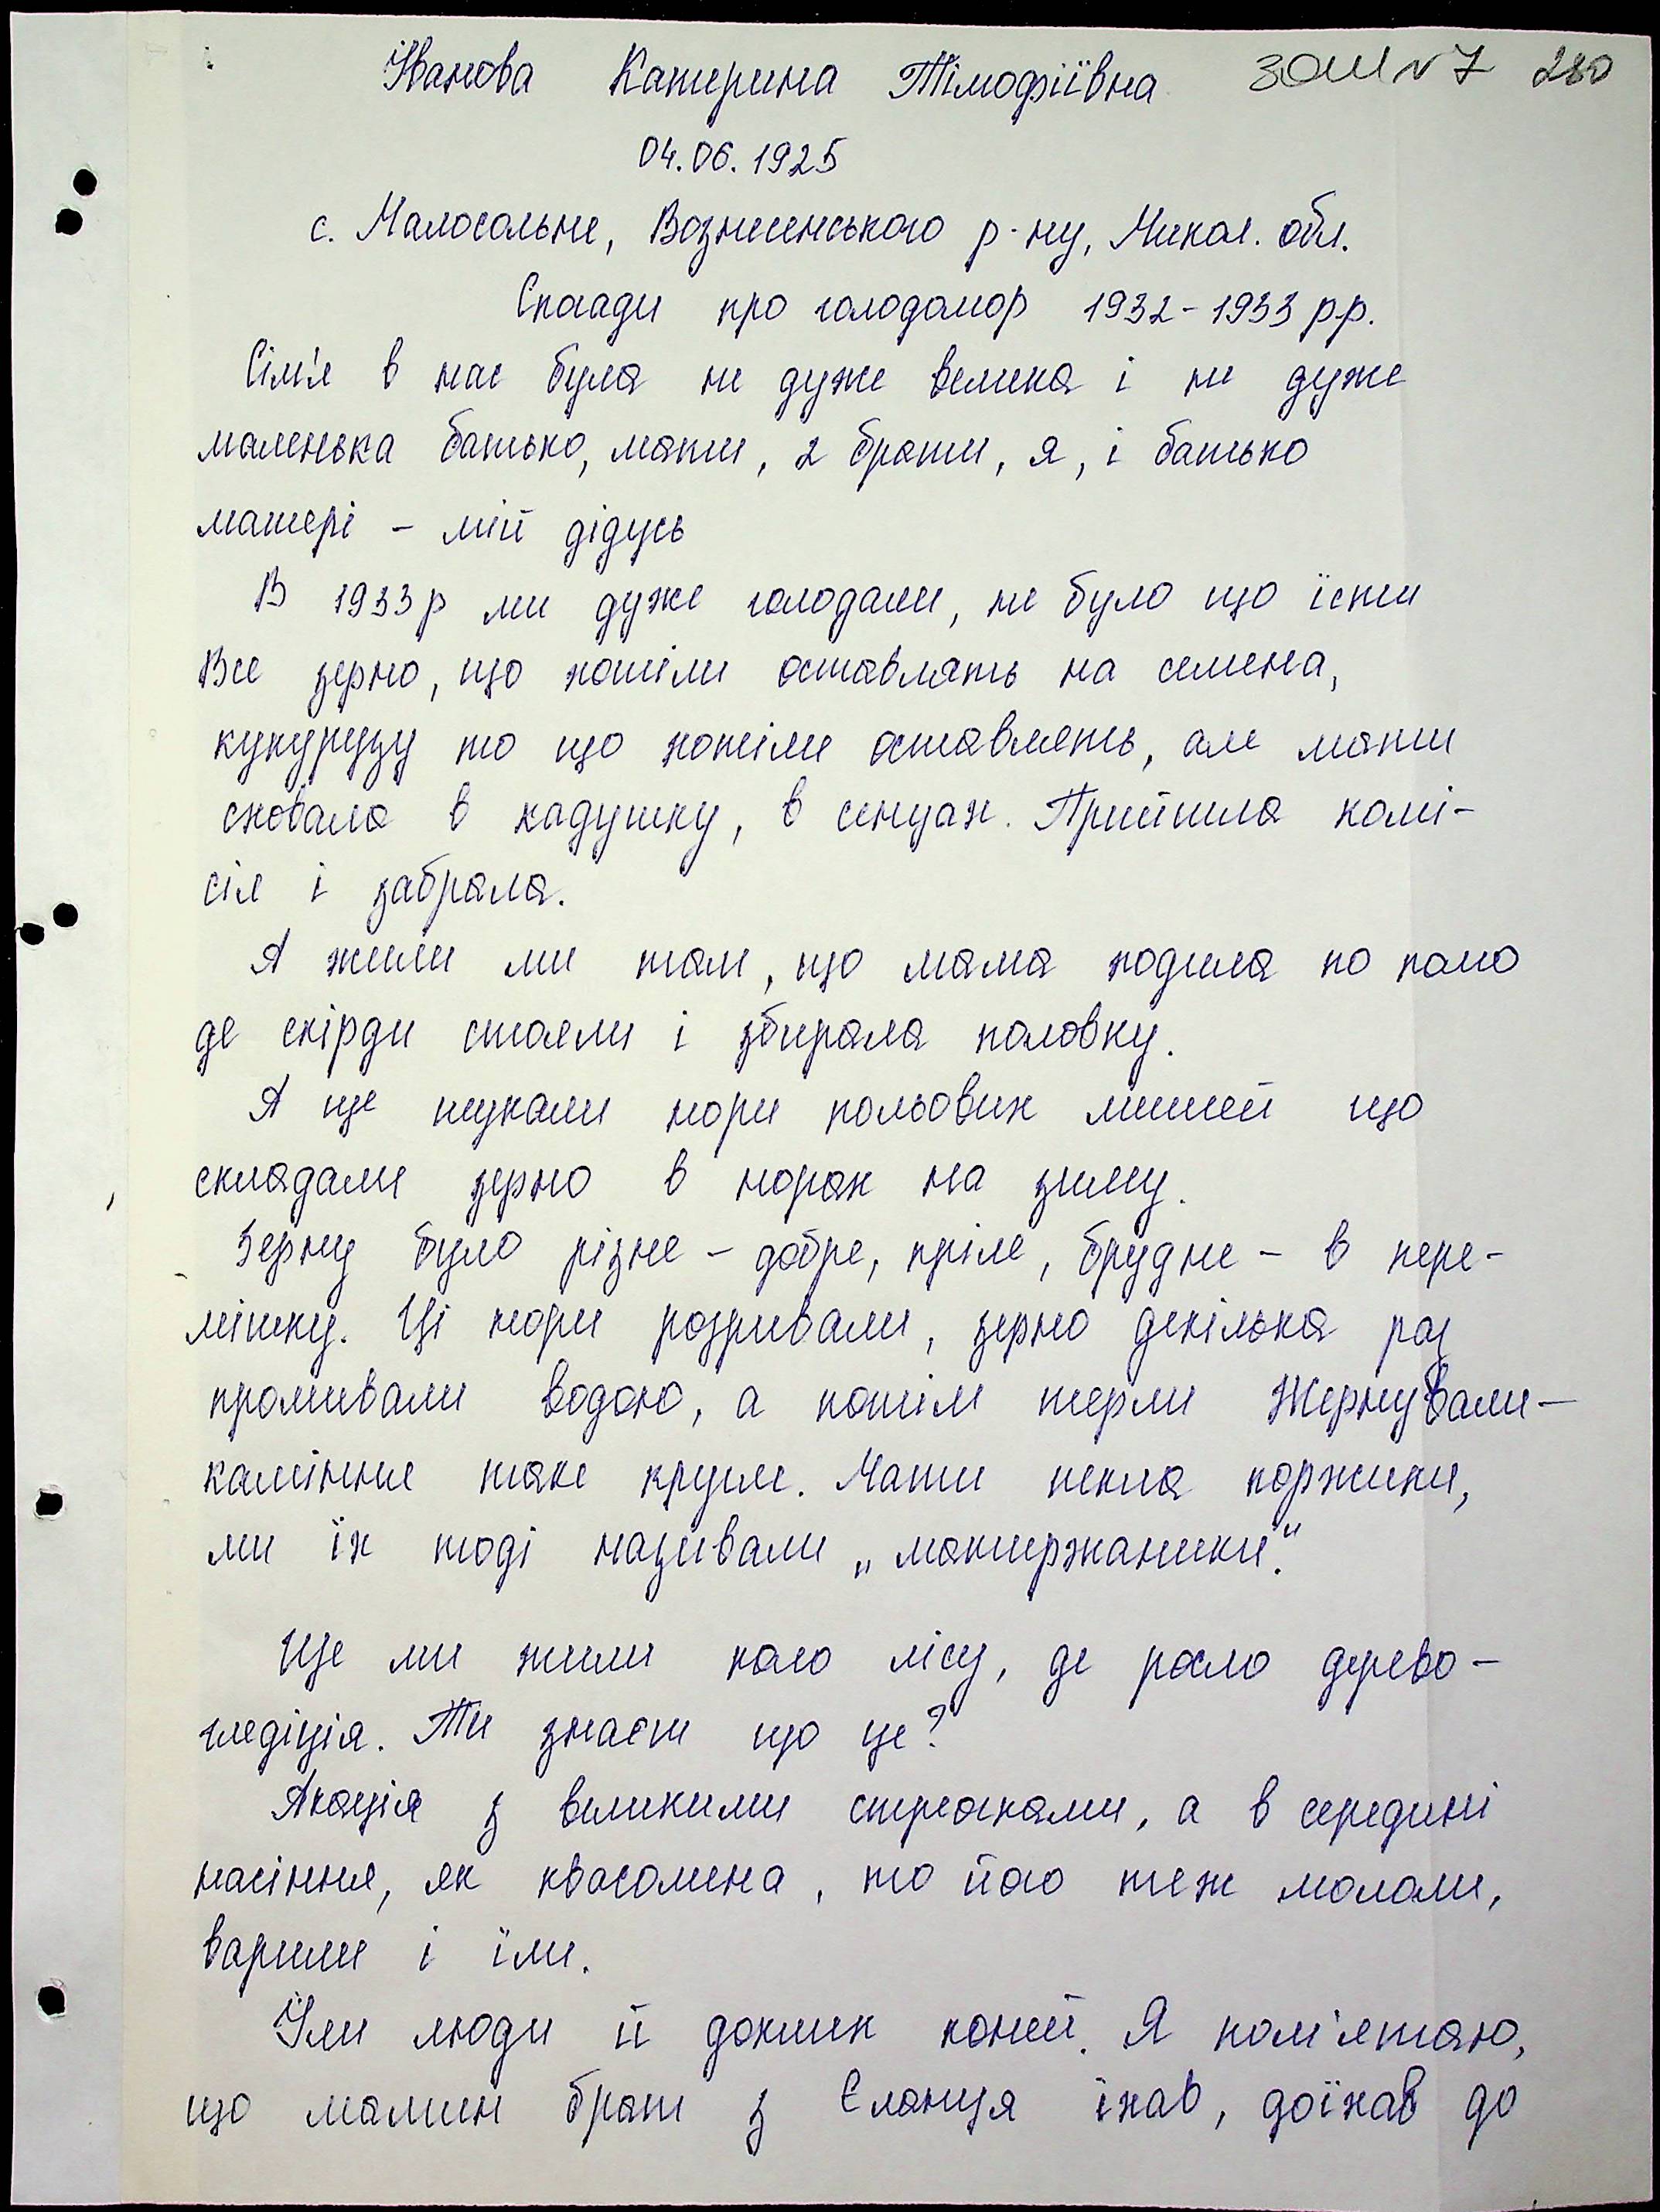 Іванова Катерина Тімофіївна ЗОШ №7 280
04.06.1925
с. Малосольне, Вознесенського р-ну, Микол. обл.
Спогади про голодомор 1932-1933 р.р.
Сім'я в нас була не дуже велика і не дуже
маленька батько, мати, 2 брати, я, і батько
матері - мій дідусь
В 1933р ми дуже голодали, не було що їсти
Все зерно, що хотіли оставлять на семена,
кукурузу то що хотіли оставлять, але мати
сховала в кадушку, в сінцах. Прийшла комі-
сія і забрала.
А жили ми там, що мама ходила по полю
де скірди стояли і збирала половку.
А ще шукали нори польових мишей що
складали зерно в норах на зиму.
Зерну було різне - добре, пріле, брудне - в пере-
мішку. Ці нори розривали, зерно декілька раз
промивали водою, а потім терли жернували-
каміння таке кругле. Мати пекла коржики,
ми їх тоді називали „маторжаники".
Ще ми жили коло лісу, де росло дерево -
гледіція. Ти знаєш що це?
Акація з великими стрючками, а в середині
насіння, як квасолина, то його теж мололи,
варили і їли.
Їли люди й дохлих коней. Я пам'ятаю,
що мамин брат з Єланця їхав, доїхав до